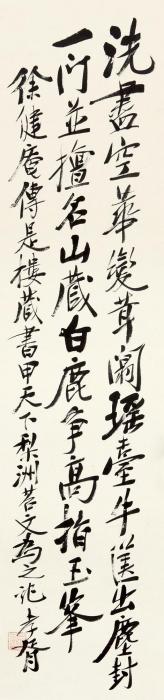 洗盡空華變萁阔瑤臺牛漢出塵封
一門並擅名山藏白鹿爭高指玉峯
徐健庵傳是樓藏書甲天下梨洲昔文為之記 孝胥